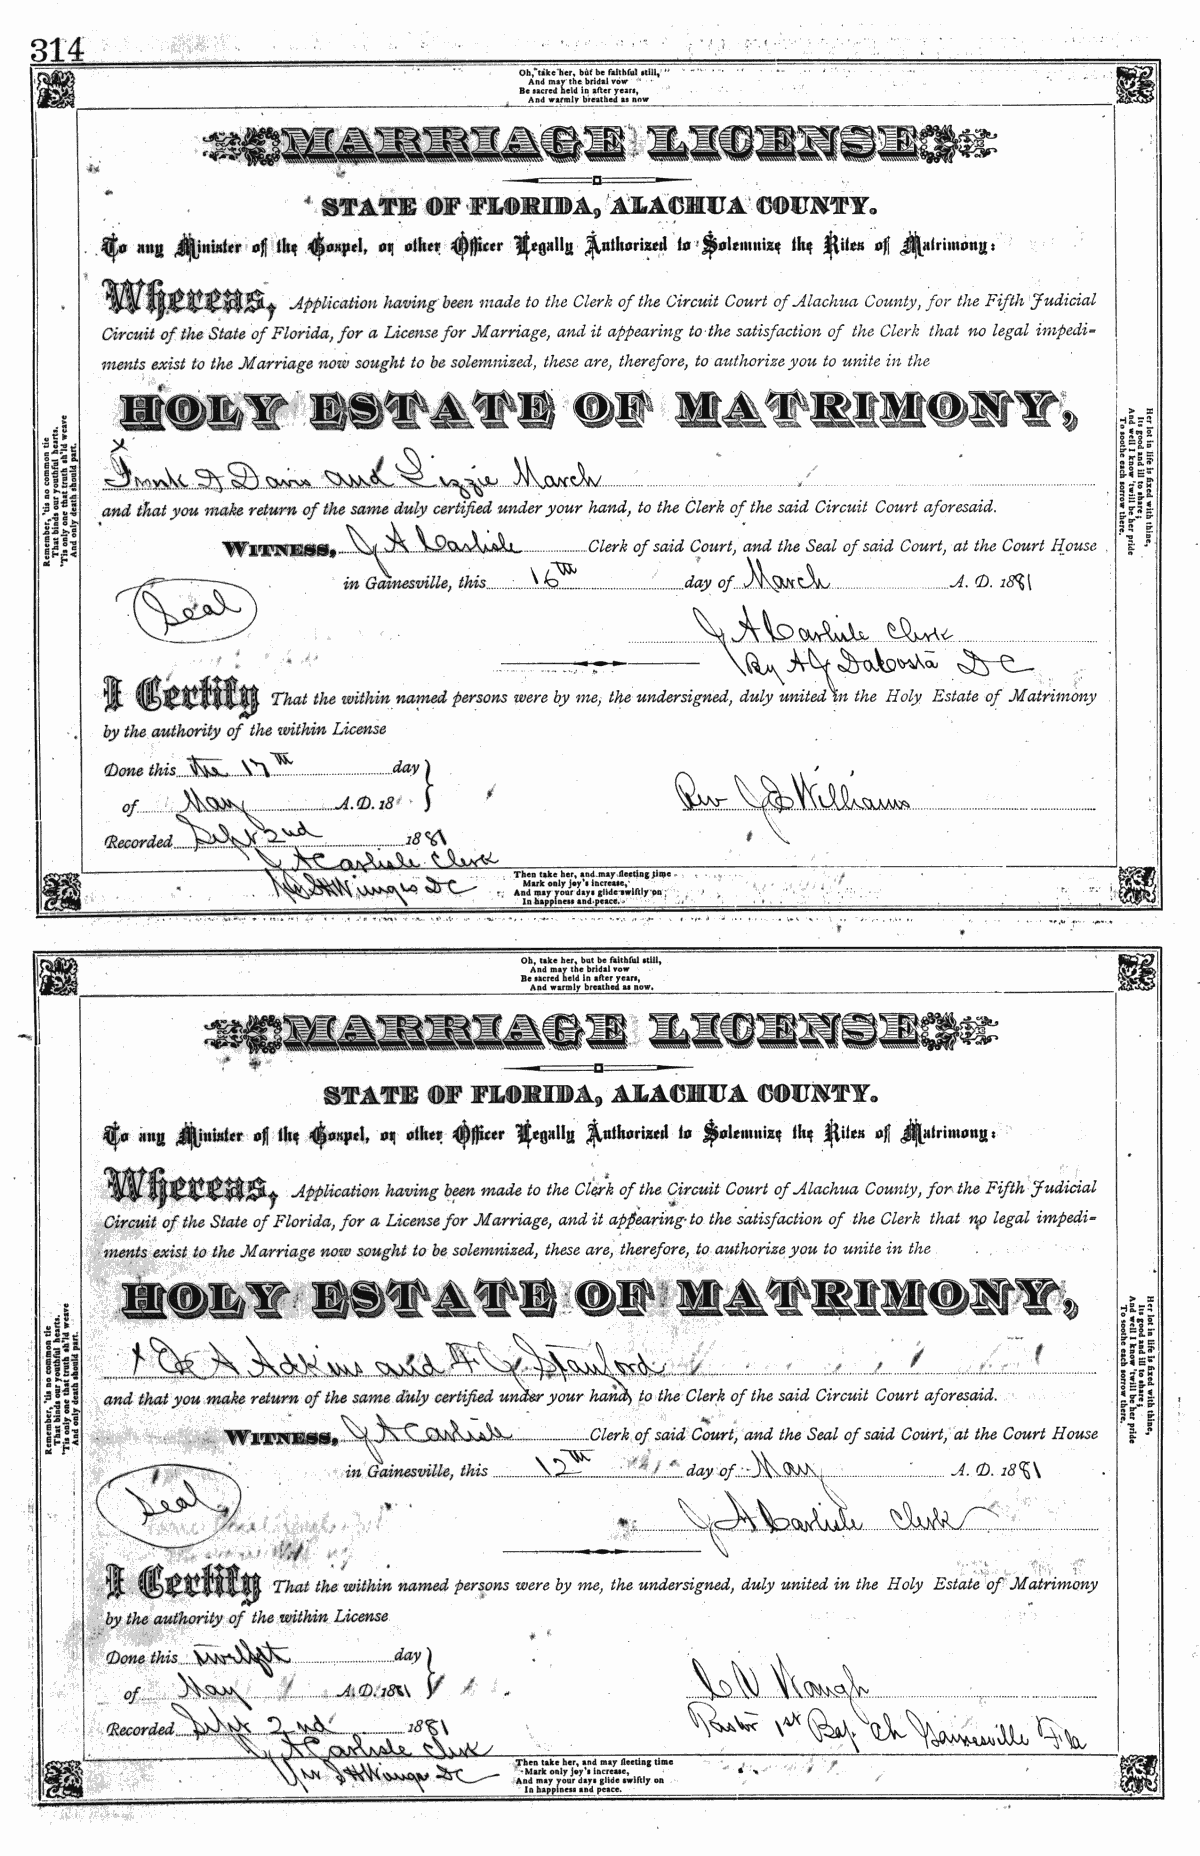 314
Oh, take her, but be faithful still,
And may the bridal vow
Be sacred held in after years,
And warmly breathed as now
MARRIAGE LICENSE
STATE OF FLORIDA, ALACHUA COUNTY.
To any Minister of the Gospel, or other Officer Legally Authorized to Solemnize the Rites of Matrimony:
Whereas, Application having been made to the Clerk of the Circuit Court of Alachua County, for the Fifth Judicial
Circuit of the State of Florida, for a License for Marriage, and it appearing to the satisfaction of the Clerk that no legal impedi-
ments exist to the Marriage now sought to be solemnized, these are, therefore, to authorize you to unite in the
HOLY ESTATE OF MATRIMONY,
x
Frank A Davis and Lizzie March
and that you make return of the same duly certified under your hand, to the Clerk of the said Circuit Court aforesaid.
WITNESS, J A Carlisle Clerk of said Court, and the Seal of said Court, at the Court House
in Gainesville, this 16th day of March A. D. 1881
Seal
J A Carlisle Clerk
By A J DaCosta D C
I Certify That the within named persons were by me, the undersigned, duly united in the Holy Estate of Matrimony
by the authority of the within License
Done this the 17th day
of May A.D. 18
Rev J E Williams
Recorded Sept 2nd 1881
J A Carlisle Clerk
D C
Then take her, and may fleeting time
Mark only joy's increase,
And may your days glide swiftly on
In happiness and peace.
Remember, 'tis no common tie
That binds our youthful hearts.
'Tis only one that truth sh'ld weave
And only death should part.
Her lot in life is fixed with thine,
Its good and ill to share;
And well I know 'twill be her pride
To soothe each sorrow there.
Oh, take her, but be faithful still,
And may the bridal vow
Be sacred held in after years,
And warmly breathed as now.
MARRIAGE LICENSE
STATE OF FLORIDA, ALACHUA COUNTY.
To any Minister of the Gospel, or other Officer Legally Authorized to Solemnize the Rites of Matrimony:
Whereas, Application having been made to the Clerk of the Circuit Court of Alachua County, for the Fifth Judicial
Circuit of the State of Florida, for a License for Marriage, and it appearing to the satisfaction of the Clerk that no legal impedi-
ments exist to the Marriage now sought to be solemnized, these are, therefore, to authorize you to unite in the
HOLY ESTATE OF MATRIMONY,
x E A Adkins and F J Stanford
and that you make return of the same duly certified under your hand, to the Clerk of the said Circuit Court aforesaid.
WITNESS, J A Carlisle Clerk of said Court, and the Seal of said Court, at the Court House
in Gainesville, this 12th day of May A. D. 1881
Seal
J A Carlisle Clerk
I Certify That the within named persons were by me, the undersigned, duly united in the Holy Estate of Matrimony
by the authority of the within License
Done this twelft day
of May A.D. 1881
C V Waugh
Pastor 1st Bap. Ch Gainesville Fla
Recorded Sept 2nd 1881
J A Carlisle Clerk
D C
Then take her, and may fleeting time
Mark only joy's increase,
And may your days glide swiftly on
In happiness and peace.
Remember, 'tis no common tie
That binds our youthful hearts.
'Tis only one that truth sh'ld weave
And only death should part.
Her lot in life is fixed with thine,
Its good and ill to share;
And well I know 'twill be her pride
To soothe each sorrow there.